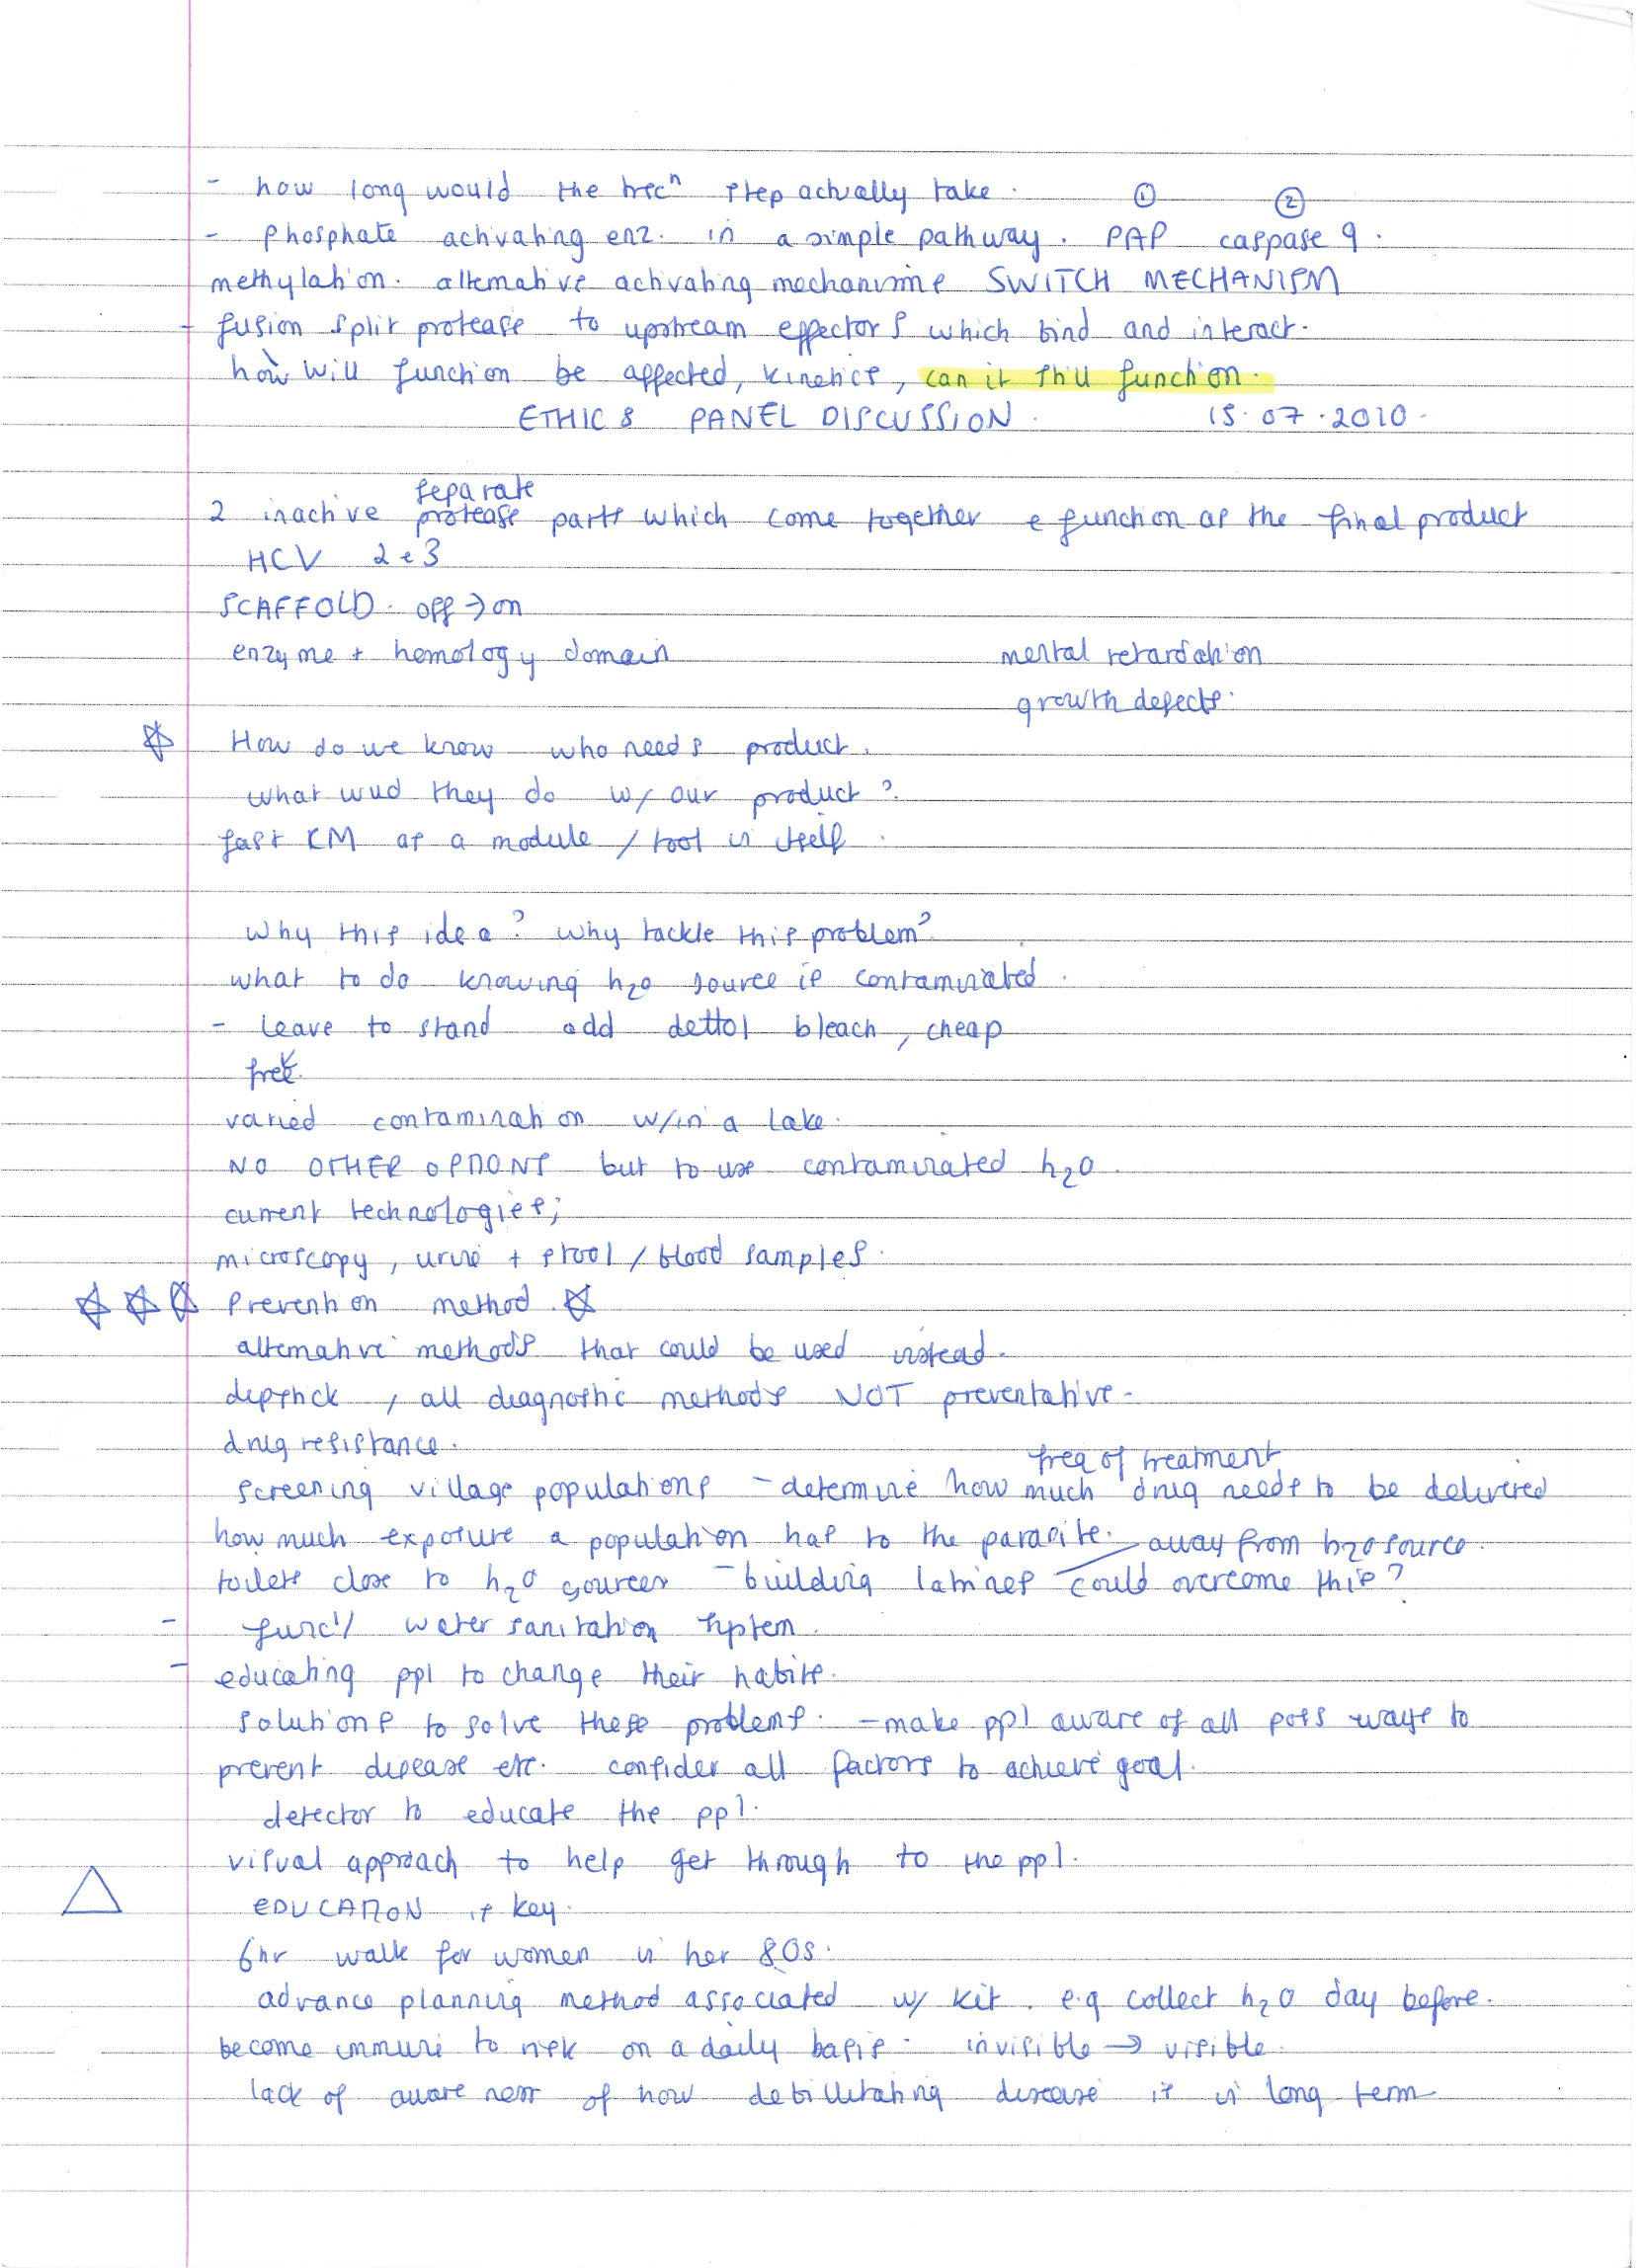 - how long would the trxn step actually take. ① ②
- Phosphate activating enz. in a simple pathway. PAP caspase 9.
methylation. alternative activating mechanisms SWITCH MECHANISM
- fusion split protease to upstream effectors which bind and interact.
how will function be affected, kinetics, can it still function.
ETHICS PANEL DISCUSSION. 15.07.2010.
separate
2 inactive protease parts which come together & function as the final product
HCV 2 & 3
SCAFFOLD. off → on
enzyme + homology domain mental retardation
growth defects.
☆ How do we know who needs product.
what wud they do w/ our product?
fast RM as a module / tool in itself.
Why this idea? why tackle this problem?
what to do knowing h₂o source is contaminated.
- leave to stand add dettol bleach, cheap
free.
varied contamination w/in a lake.
NO OTHER OPTIONS but to use contaminated h₂o.
current technologies;
microscopy, urine + stool / blood samples.
☆☆☆ Prevention method. ☆
alternative methods that could be used instead.
dipstick, all diagnostic methods NOT preventative.
drug resistance.
freq of treatment
screening village populations - determine how much drug needs to be delivered
how much exposure a population has to the parasite. away from h₂o source.
toilets close to h₂o sources - building latrines could overcome this?
- func'l water sanitation system.
- educating ppl to change their habits.
solutions to solve these problems. - make ppl aware of all poss ways to
prevent disease etc. consider all factors to achieve goal.
detector to educate the ppl.
visual approach to help get through to the ppl.
△ EDUCATION is key.
6hr walk for women in her 80s.
advance planning method associated w/ kit. e.g collect h₂o day before.
become immune to risk on a daily basis. invisible → visible.
lack of awareness of how debilitating disease it is long term